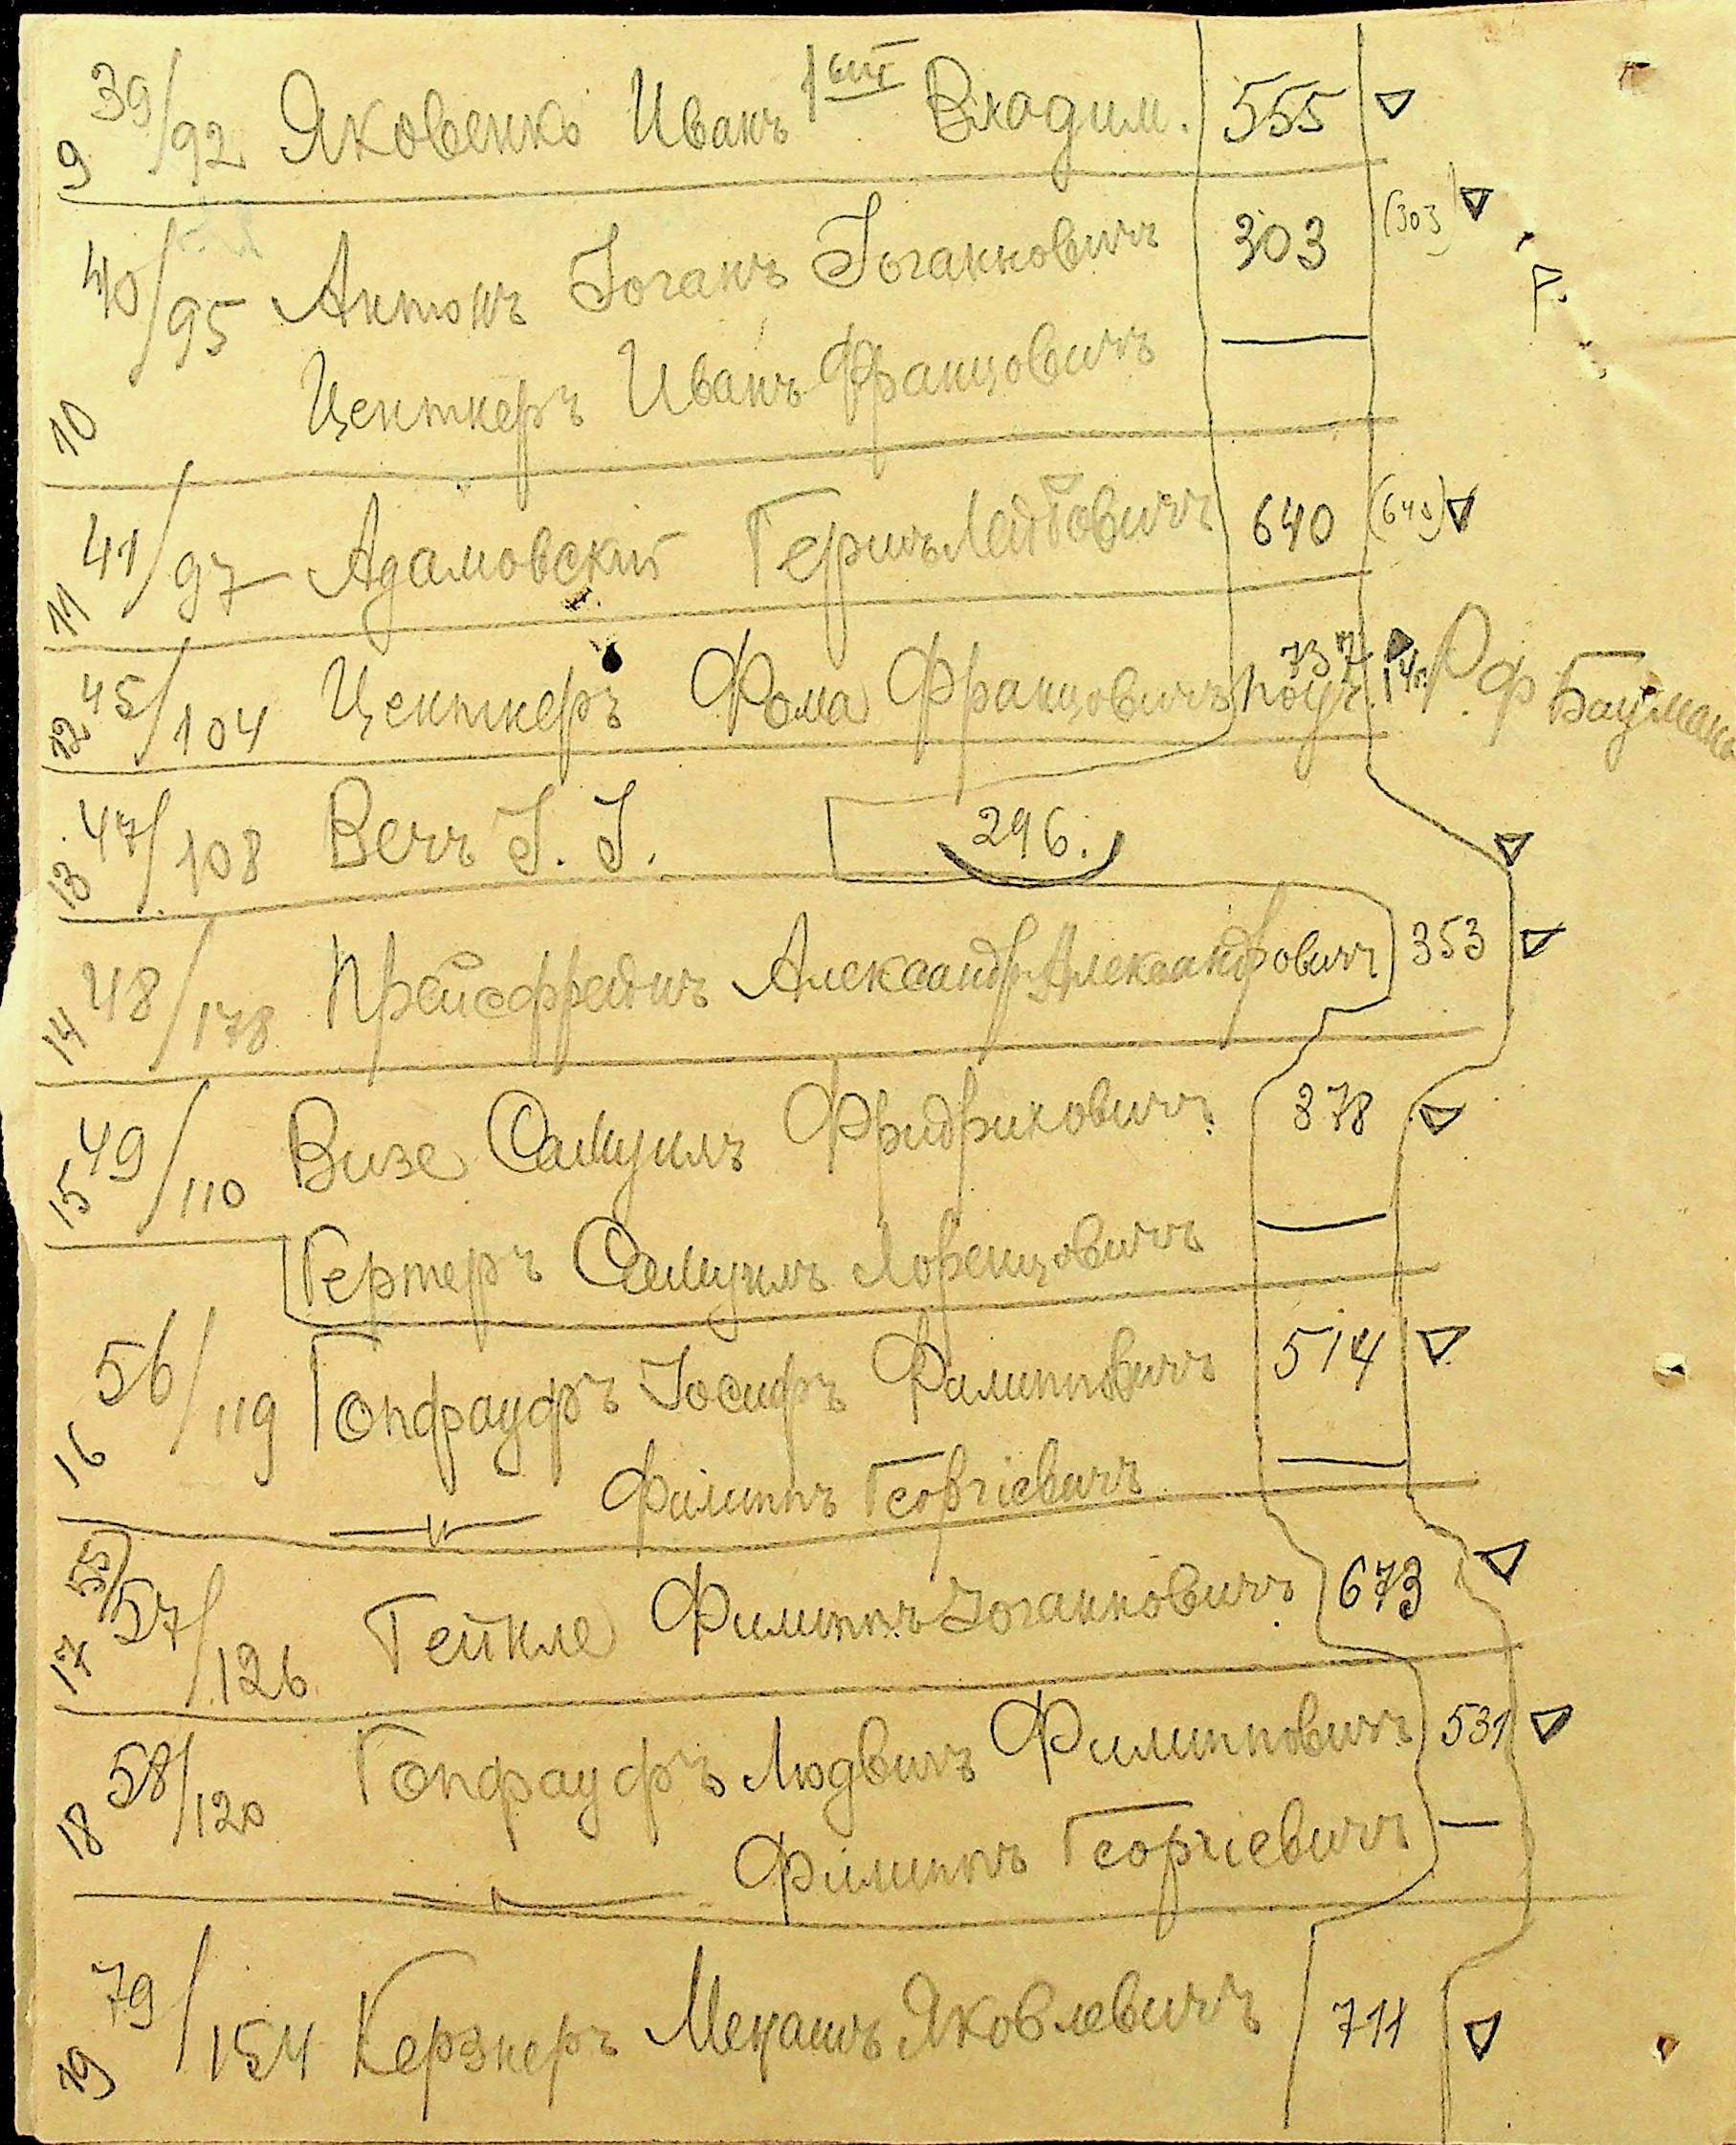 9 39/92 Яковенко Иванъ 1ый Владим. 555
40/95 Антонъ Іоганъ Іоганновичъ 303 (303)
Р.
10 Центнеръ Иванъ Францовичъ —
11 41/97 Адамовскій Гершъ Лейбовичъ 640 (640)
12 45/104 Центнеръ Фома Францовичъ 737 Р. Ф Баумана
13 47/108 Вечъ І. І. 296.
14 48/178 Прейсфрейтъ Александръ Александровичъ 353
15 49/110 Визе Самуилъ Фридриховичъ 378
Гертеръ Самуилъ Лоренцовичъ —
16 56/119 Гопфауфъ Іосифъ Филипповичъ 514
—"— Филиппъ Георгіевичъ —
17 55/57/126 Гейнле Филиппъ Іоганновичъ 673
18 58/120 Гопфауфъ Людвигъ Филипповичъ 531
—"— Филиппъ Георгіевичъ —
19 79/154 Керзнеръ Менашъ Яковлевичъ 711